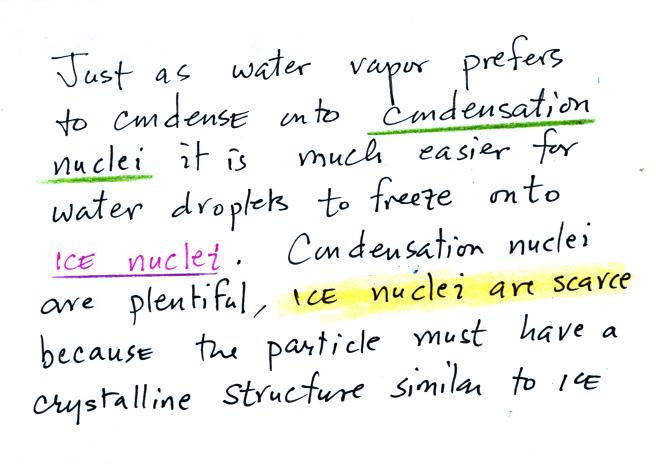 Just as water vapor prefers
to condense onto condensation
nuclei it is much easier for
water droplets to freeze onto
ICE nuclei. Condensation nuclei
are plentiful, ICE nuclei are scarce
because the particle must have a
crystalline structure similar to ICE